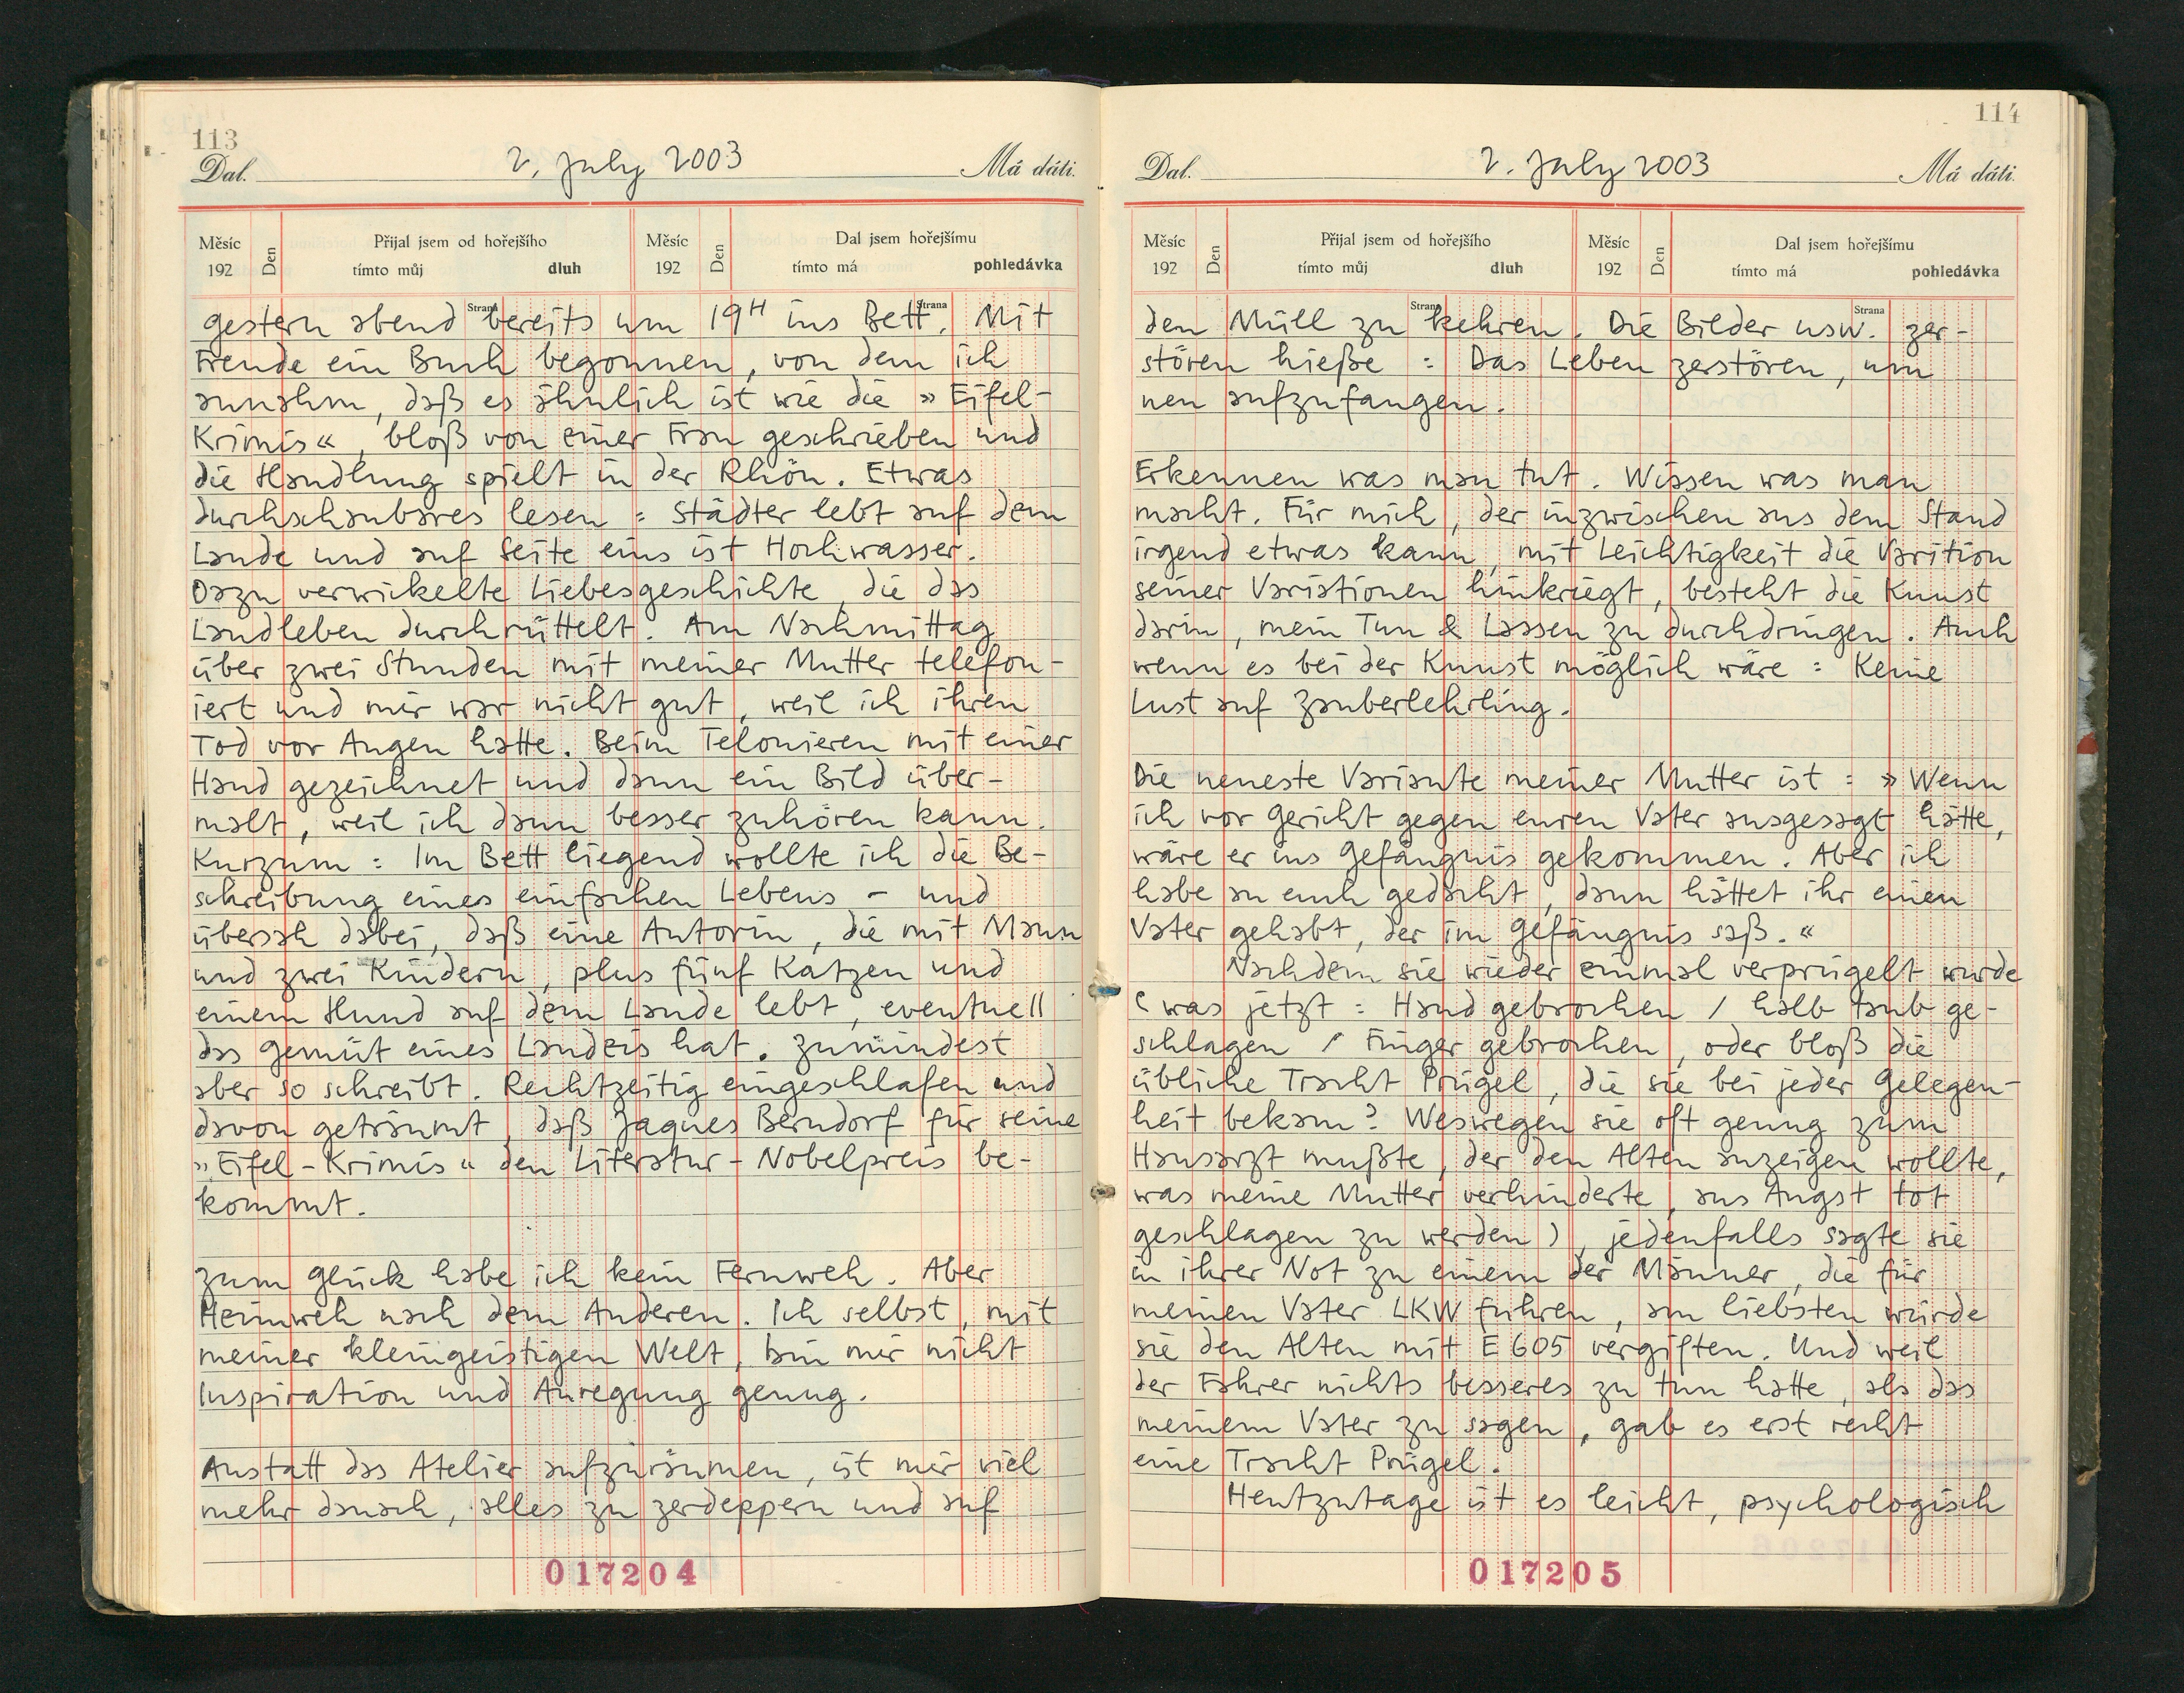 113
Dal. 2. July 2003 Má dáti.
Měsíc 192 Den Přijal jsem od hořejšího tímto můj dluh Měsíc 192 Den Dal jsem hořejšímu tímto má pohledávka
Strana Strana
gestern abend bereits um 19H ins Bett. Mit
Freude ein Buch begonnen, von dem ich
annahm, daß es ähnlich ist wie die »Eifel-
Krimis«, bloß von einer Frau geschrieben und
die Handlung spielt in der Rhön. Etwas
durchschaubares lesen: Städter lebt auf dem
Lande und auf Seite eins ist Hochwasser.
Dazu verwickelte Liebesgeschichte, die das
Landleben durchrüttelt. Am Nachmittag
über zwei Stunden mit meiner Mutter telefon-
iert und mir war nicht gut, weil ich ihren
Tod vor Augen hatte. Beim Telonieren mit einer
Hand gezeichnet und dann ein Bild über-
malt, weil ich dann besser zuhören kann.
Kurzum: Im Bett liegend wollte ich die Be-
schreibung eines einfachen Lebens – und
übersah dabei, daß eine Autorin, die mit Mann
und zwei Kindern, plus fünf Katzen und
einem Hund auf dem Lande lebt, eventuell
das Gemüt eines Landeis hat. Zumindest
aber so schreibt. Rechtzeitig eingeschlafen und
davon geträumt, daß Jaques Berndorf für seine
»Eifel-Krimis« den Literatur-Nobelpreis be-
kommt.
Zum Glück habe ich kein Fernweh. Aber
Heimweh nach dem Anderen. Ich selbst, mit
meiner kleingeistigen Welt, bin mir nicht
Inspiration und Anregung genug.
Anstatt das Atelier aufzuräumen, ist mir viel
mehr danach, alles zu zerdeppern und auf
017204
114
Dal. 2. July 2003 Má dáti.
Měsíc 192 Den Přijal jsem od hořejšího tímto můj dluh Měsíc 192 Den Dal jsem hořejšímu tímto má pohledávka
Strana Strana
den Müll zu kehren. Die Bilder usw. zer-
stören hieße: Das Leben zerstören, um
neu aufzufangen.
Erkennen was man tut. Wissen was man
macht. Für mich, der inzwischen aus dem Stand
irgend etwas kann, mit Leichtigkeit die Varition
seiner Variationen hinkriegt, besteht die Kunst
darin, mein Tun & Lassen zu durchdringen. Auch
wenn es bei der Kunst möglich wäre: Keine
Lust auf Zauberlehrling.
Die neueste Variante meiner Mutter ist: »Wenn
ich vor Gericht gegen euren Vater ausgesagt hätte,
wäre er ins Gefängnis gekommen. Aber ich
habe an euch gedacht, dann hättet ihr einen
Vater gehabt, der im Gefängnis saß.«
Nachdem sie wieder einmal verprügelt wurde
(was jetzt: Hand gebrochen / halb taub ge-
schlagen / Finger gebrochen, oder bloß die
übliche Tracht Prügel, die sie bei jeder Gelegen-
heit bekam? Weswegen sie oft genug zum
Hausarzt mußte, der den Alten anzeigen wollte,
was meine Mutter verhinderte, aus Angst tot
geschlagen zu werden), jedenfalls sagte sie
in ihrer Not zu einem der Männer, die für
meinen Vater LKW fuhren, am liebsten würde
sie den Alten mit E 605 vergiften. Und weil
der Fahrer nichts besseres zu tun hatte, als das
meinem Vater zu sagen, gab es erst recht
eine Tracht Prügel.
Heutzutage ist es leicht, psychologisch
017205